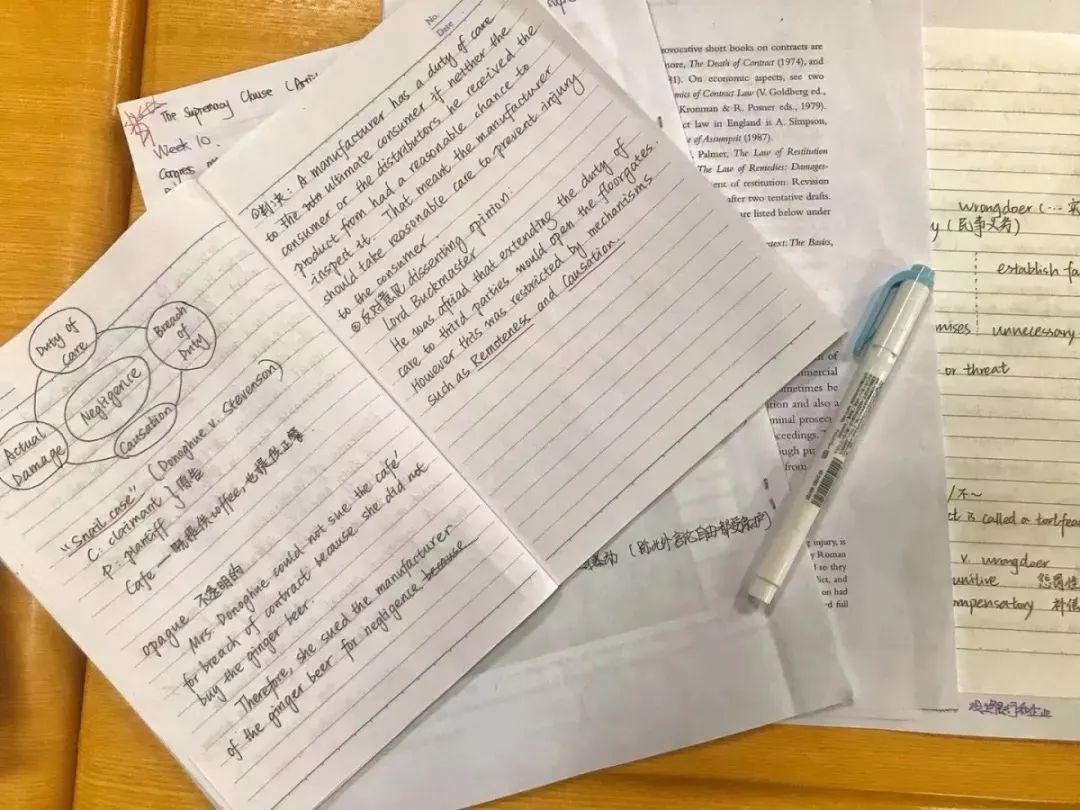 Duty of
care
Breach
of
Duty
Negligence
Actual
Damage
Causation
"Snail case" (Donoghue v. Stevenson)
C: claimant } 原告
P: plaintiff
Cafe coffee, 也提供正餐
opaque 不透明的
Mrs. Donoghue could not sue the cafe'
for breach of contract because she did not
buy the ginger beer.
Therefore, she sued the manufacturer
of the ginger beer for negligence because
No.
Date
①判决: A manufacturer has a duty of care
to the ultimate consumer if neither the
consumer or the distributors he received the
product from had a reasonable chance to
inspect it. That meant the manufacturer
should take reasonable care to prevent injury
to the consumer.
②反对意见 dissenting opinion:
Lord Buckmaster
He was afraid that extending the duty of
care to third parties would open the floorgates.
However this was restricted by mechanisms
such as Remoteness and Causation.
The Supremacy Clause (Arti
Week 10.
Congress
ovocative short books on contracts are
more, The Death of Contract (1974), and
1). On economic aspects, see two
mics of Contract Law (V. Goldberg ed.,
Kronman & R. Posner eds., 1979).
ct law in England is A. Simpson,
of Assumpsit (1987).
Palmer, The Law of Restitution
The Law of Remedies: Damages-
ent of restitution. Revision
after two tentative drafts.
are listed below under
text: The Basics,
of
mercial
metimes be
tion and also a
minal prosec
ceedings.
ough pu
from
injury, is
Roman
so they
lict, and
on had
d full
(除此外言论自由都受保护)
wrongdoer (…
y (民事义务)
establish fa
mises unnecessary
or threat
/不~
ct is called a tortfeas
v. wrongdoer
unitive 惩罚性
mpensatory 补偿